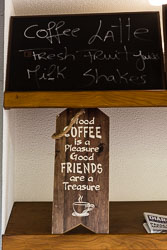 Coffee Latte
Fresh-fruit Juice
Milk Shakes
Good
COFFEE
is a
Pleasure
Good
FRIENDS
are a
Treasure